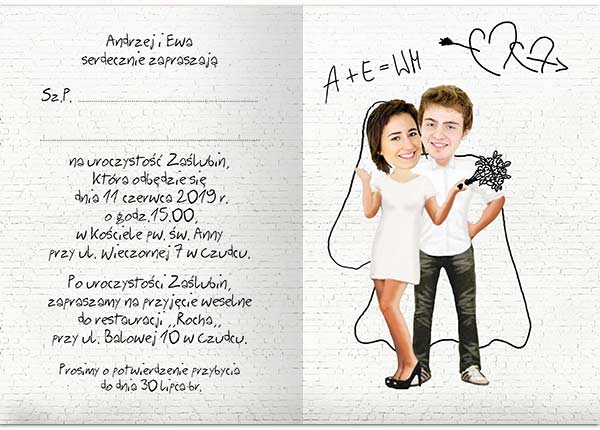 Andrzej i Ewa
serdecznie zapraszają
Sz.P. ......................................................
......................................................
na uroczystość Zaślubin,
która odbędzie się
dnia 11 czerwca 2019 r.
o godz.15.00,
w Kościele pw. św. Anny
przy ul. Wieczornej 7 w Czudcu.
Po uroczystości Zaślubin,
zapraszamy na przyjęcie weselne
do restauracji ,,Rocha,,
przy ul. Balowej 10 w Czudcu.
Prosimy o potwierdzenie przybycia
do dnia 30 lipca br.
A + E = WM